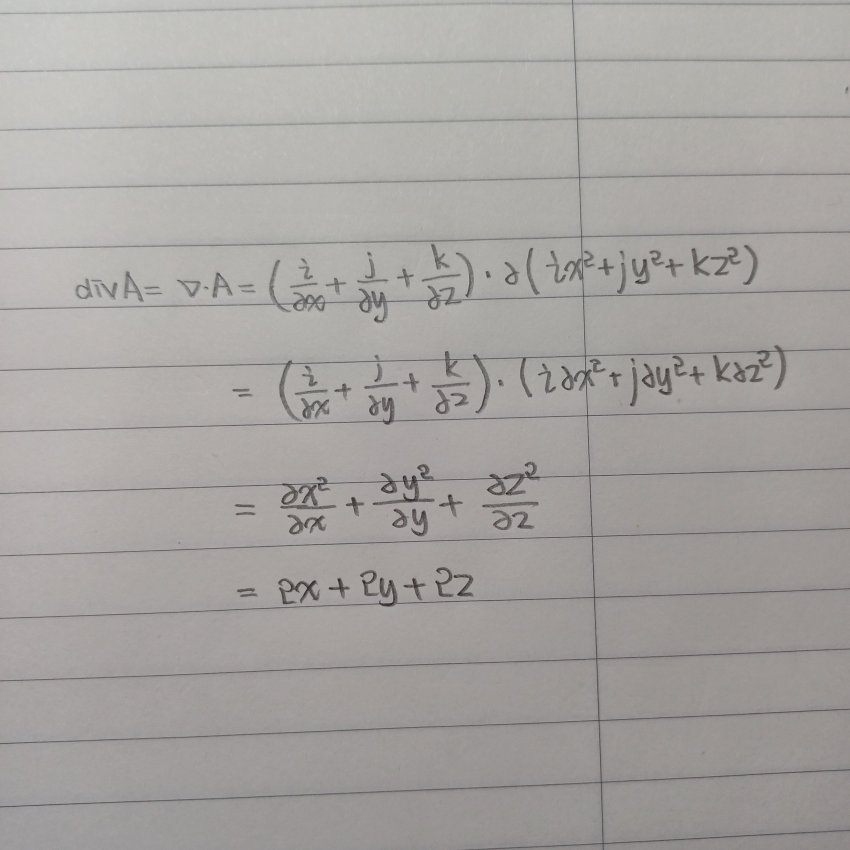 divA = ∇·A = (i/∂x + j/∂y + k/∂z) · ∂(ix² + jy² + kz²)
= (i/∂x + j/∂y + k/∂z) · (i∂x² + j∂y² + k∂z²)
= ∂x²/∂x + ∂y²/∂y + ∂z²/∂z
= 2x + 2y + 2z